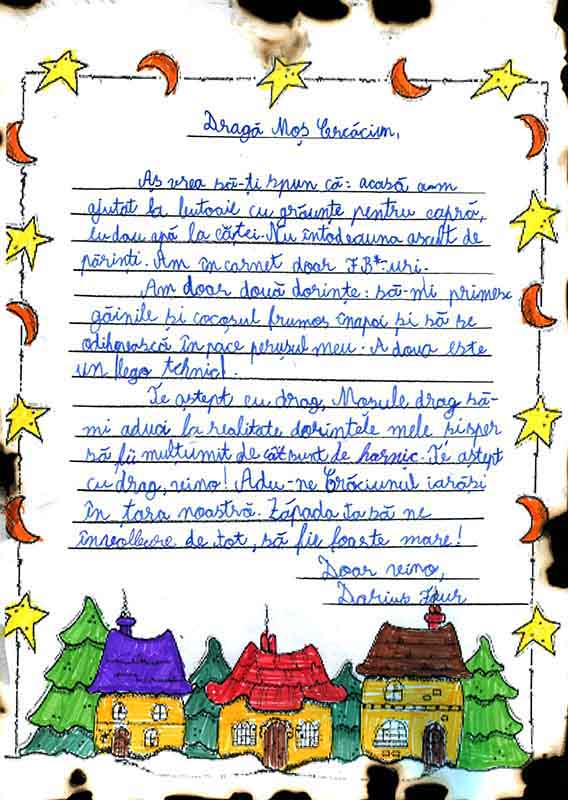 Dragă Moș Crăciun,
Aș vrea să-ți spun că: acasă am
ajutat la butoaie cu grăunțe pentru capră,
eu dau apă la căței. Nu întodeauna ascut de
părinți. Am în carnet doar FB*-uri.
Am doar două dorințe: să-mi primesc
găinile și cocoșul frumos înapoi și să se
odihnească în pace perușul meu. A doua este
un llego tehnic!
Te aștept cu drag, Moșule drag să-
mi aduci la realitate dorințele mele și sper
să fii mulțumit de cât sunt de harnic. Te aștept
cu drag, vino! Adu-ne Crăciunul iarăși
în țara noastră. Zăpada ta să ne
de tot, să fie foaste mare!
Doar vino,
Darius